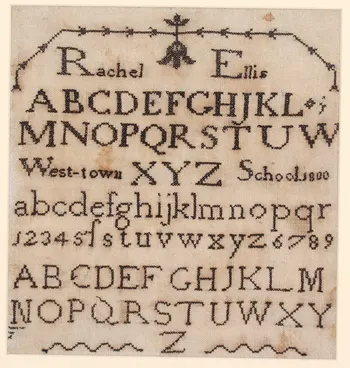 Rachel Ellis
ABCDEFGHJKL
MNOPQRSTUW
West-town XYZ School 1800
abcdefghijklmnopqr
12345ſstuvwxyz6789
ABCDEFGHJKLM
NOPQRSTUWXY
Z